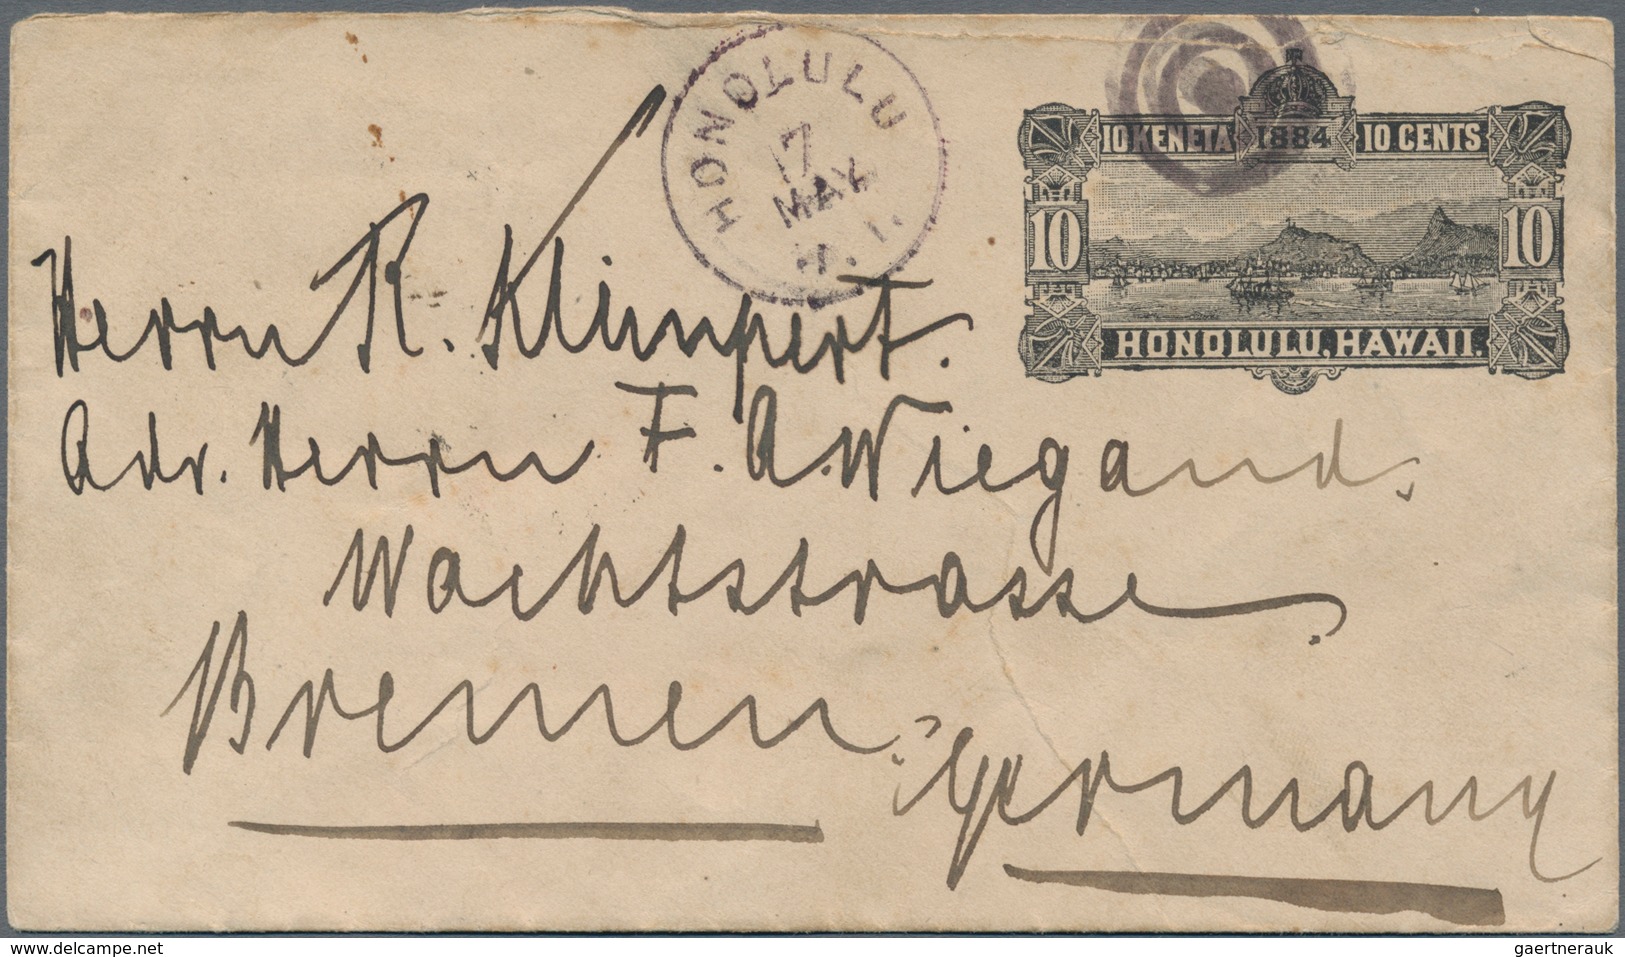 HONOLULU
17
MAY
H. I.
10 KENETA 1884 10 CENTS
10 10
HONOLULU, HAWAII.
Herrn R. Klimpert.
Adr. Herrn F. A. Wiegand.
Wachtstrasse.
Bremen.
Germany
delcampe.net
gaertnerauk